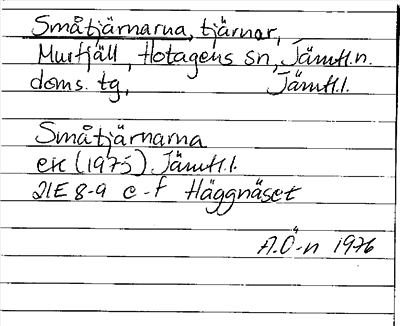 Småtjärnarna, tjärnar,
Murfjäll, Hotagens sn, Jämtl.n.
doms. tg, Jämtl.l.
Småtjärnarna
ek (1975) Jämtl.l.
21E 8-9 e-f Häggnäset
A.Ö-n 1976